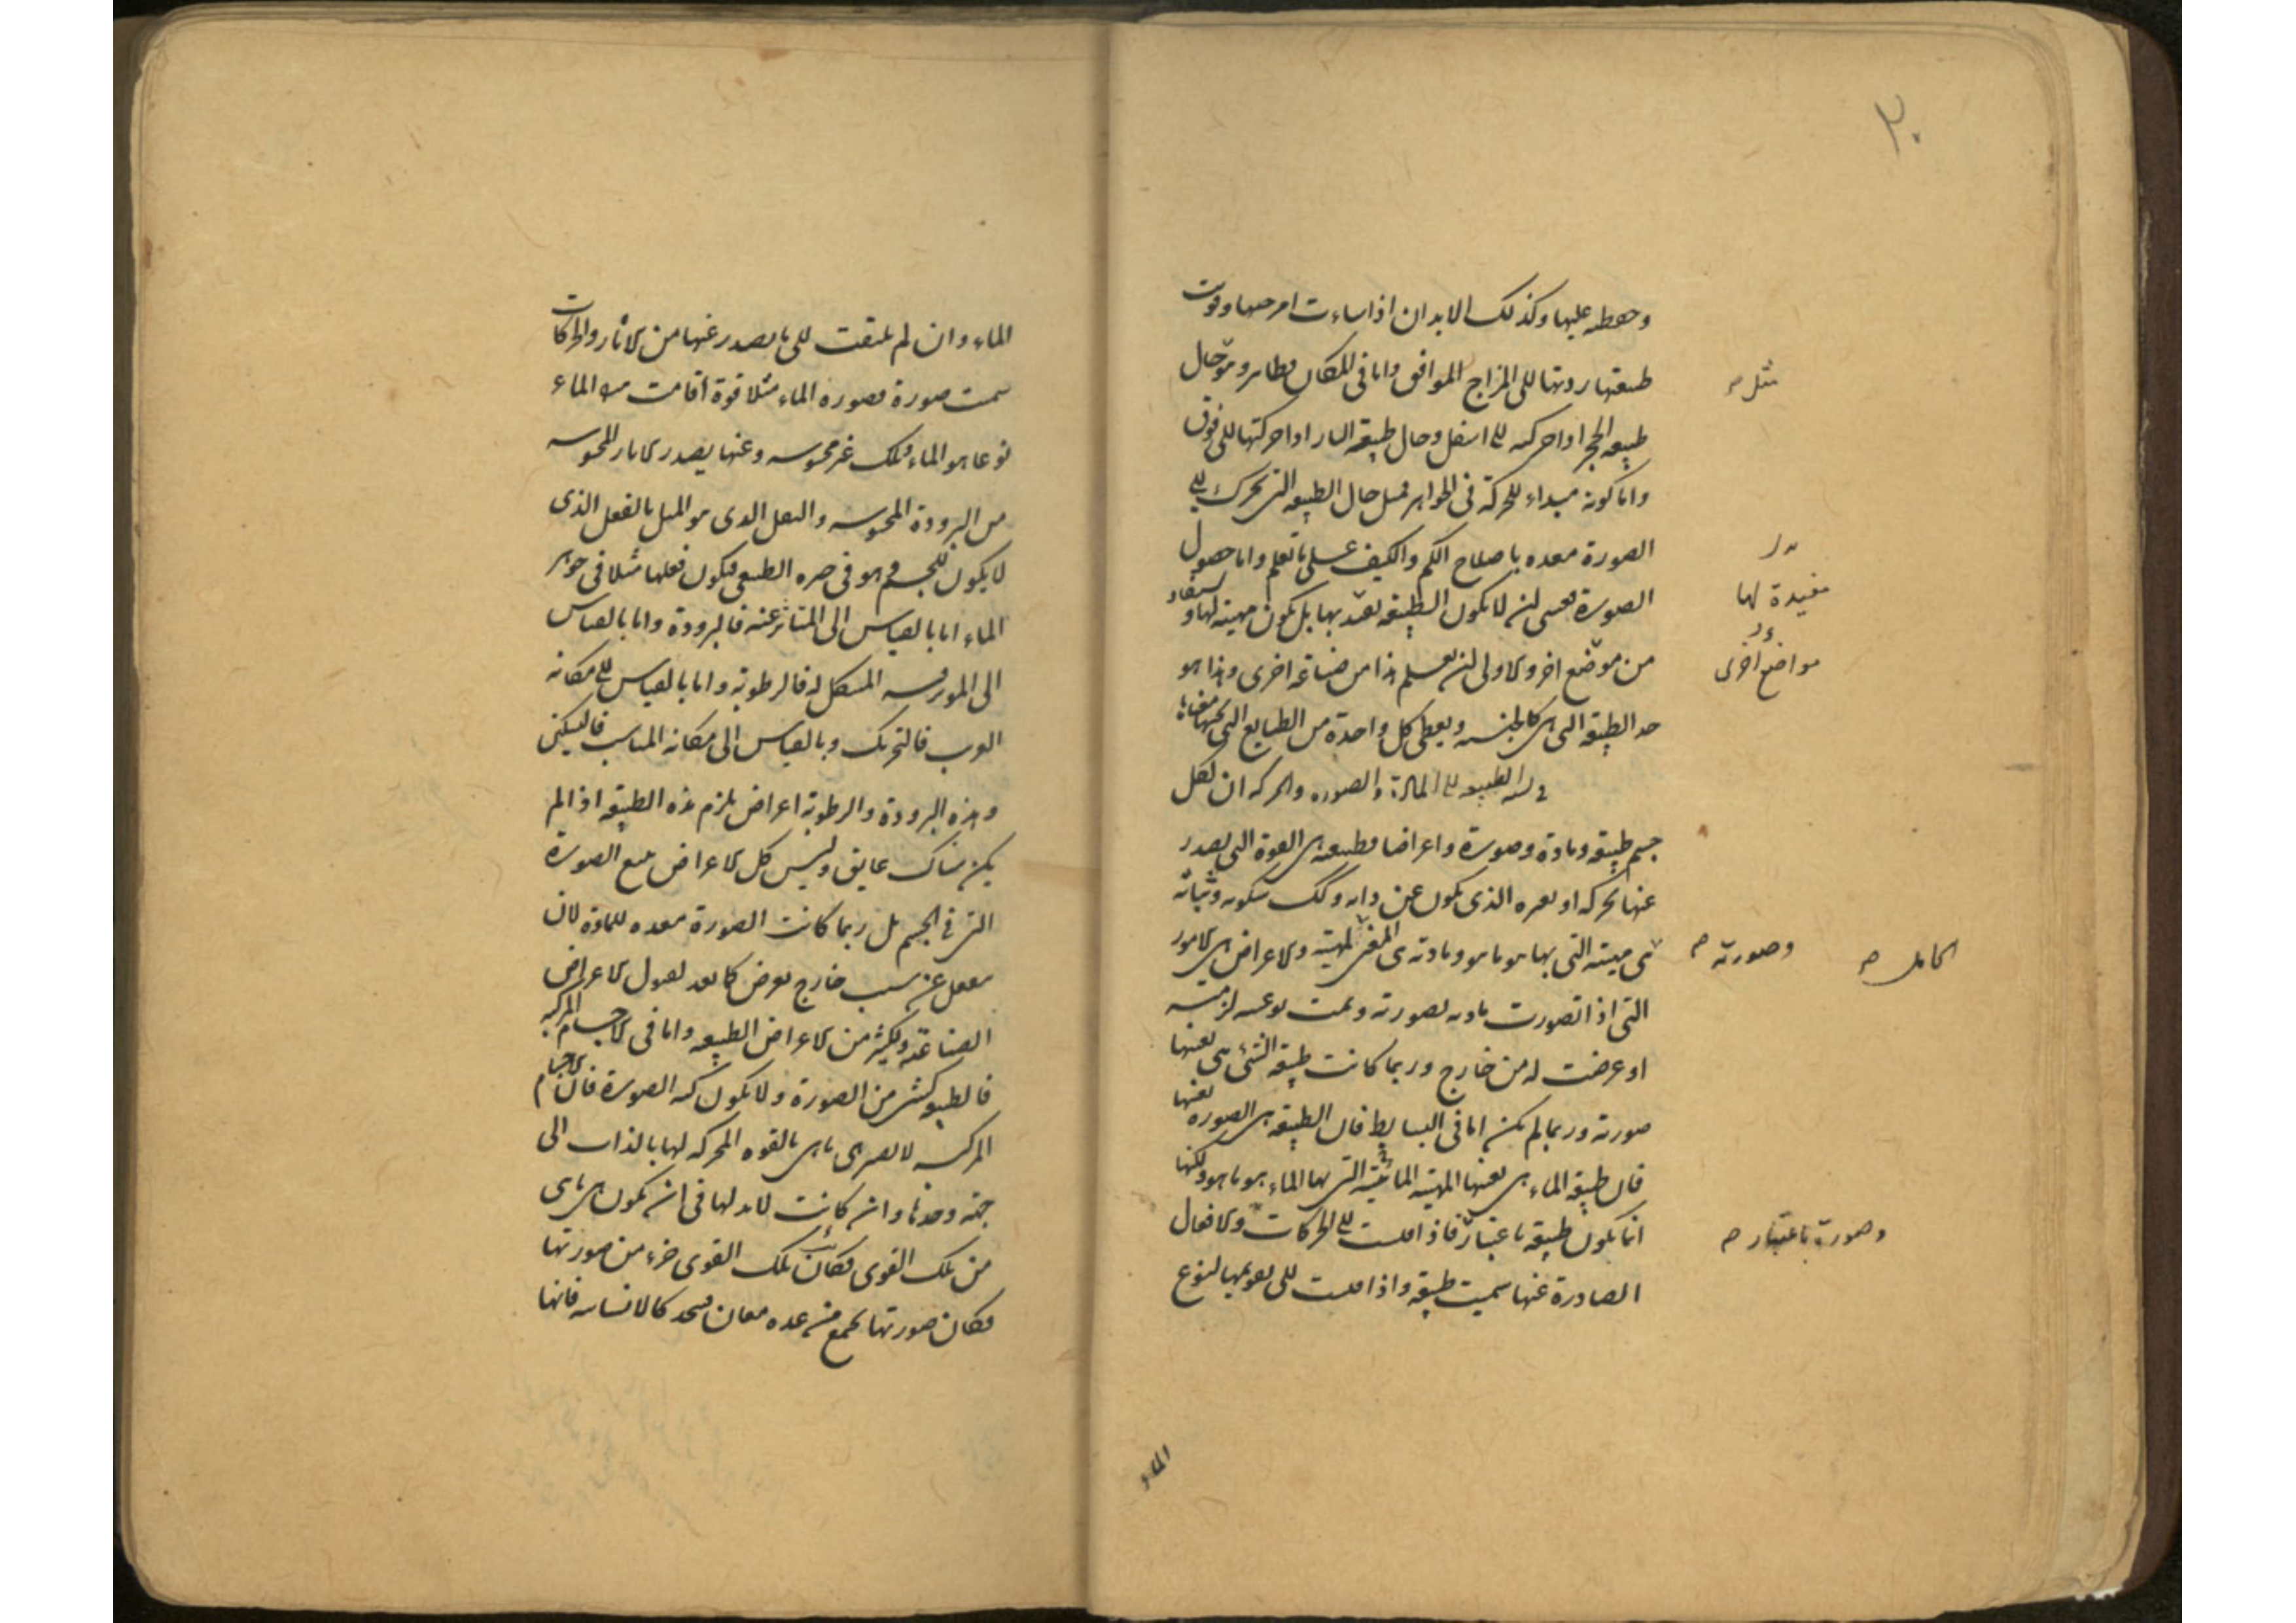 ٢٠
وحفظته عليها وكذلك الابدان اذا ساءت امزجتها وقويت
طبيعتها ردتها الى المزاج الموافق واما فى المكان فظاهر وهو حال
مثل صح
طبيعة الحجر اذا حركته الى اسفل وحال طبيعة النار اذا حركتها الى فوق
واما كونه مبداء للحركة فى الجواهر فمثل حال الطبيعة التى تحرك الى
الصورة معده باصلاح الكم والكيف على ما تعلم واما حصول
الصورة فعسى ان لا يكون الطبيعة تفيد بها بل يكون مهيئة لها و يستفاد
مفيدة لها
من موضع اخر والاولى ان يعلم هذا من صناعة اخرى وهذا هو
مواضع اخرى
حد الطبيعة التى هى كالجنس ويعطى كل واحدة من الطبايع التى تحتها معناها
فى نسبة الطبيعة الى المادة والصورة والحركة ان لكل
جسم طبيعة ومادة وصورة واعراضا فطبيعته هى القوة التى يصدر
عنها تحركه او تغيره الذى يكون عن ذاته وكذلك سكونه وثباته
هى مهيته التى بها هو ما هو ومادته هى المعنى لمهيته والاعراض هى الامور
وصورته صح
الحامل صح
التى اذا تصورت مادته بصورته وتمت نوعيته لزمته
او عرضت له من خارج وربما كانت طبيعة الشئ هى بعينها
صورته وربما لم يكن اما فى البسايط فان الطبيعة هى الصورة بعينها
فان طبيعة الماء هى بعينها المهية المائية التى بها الماء هو ما هو ولكنها
انما يكون طبيعة باعتبار فاذا قيست الى الحركات والافعال
وصورة باعتبار صح
الصادرة عنها سميت طبيعة واذا قيست الى تقويمها لنوع
الماء و
الماء وان لم يلتفت الى ما يصدر عنها من الاثار والحركات
سميت صورة فصورة الماء مثلا قوة اقامت هيولى الماء
نوعا هو الماء وتلك غير محسوسه وعنها يصدر الاثار المحسوسه
من البرودة المحسوسه والثقل الذى هو الميل بالفعل الذى
لا يكون للجسم وهو فى حيزه الطبيعى فيكون فعلها مثلا فى جوهر
الماء اما بالقياس الى المتاثر عنه فالبرودة واما بالقياس
الى الموثر فيه المشكل له فالرطوبة واما بالقياس الى مكانه
القريب فالتحريك وبالقياس الى مكانه المناسب فالتسكين
وهذه البرودة والرطوبة اعراض يلزم هذه الطبيعة اذا لم
يكن هناك عايق وليس كل الاعراض يتبع الصورة
التى فى الجسم بل ربما كانت الصورة معده للمادة لان
ينفعل عن سبب خارج يعرض كما يعد لقبول الاعراض
الصناعية ولكثير من الاعراض الطبيعيه واما فى الاجسام المركبه
فالطبيعه كشئ من الصورة ولا يكون كنه الصورة فان الاجسام
المركبه لا تصير هى ما هى بالقوه المحركه لها بالذات الى
جهة وحدها وان كانت لا بد لها فى ان تكون هى ما هى
من تلك القوى فكان تلك القوى جزء من صورتها
فكان صورتها تجتمع من عده معان فيتحد كالانسانيه فانها